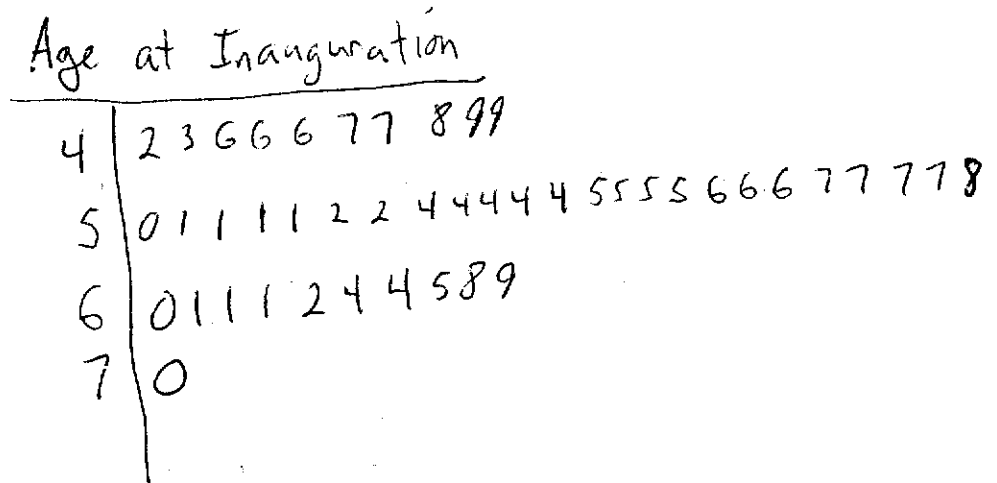 Age at Inauguration
4 | 2 3 6 6 6 7 7 8 9 9
5 | 0 1 1 1 1 2 2 4 4 4 4 4 5 5 5 5 6 6 6 7 7 7 7 8
6 | 0 1 1 1 2 4 4 5 8 9
7 | 0